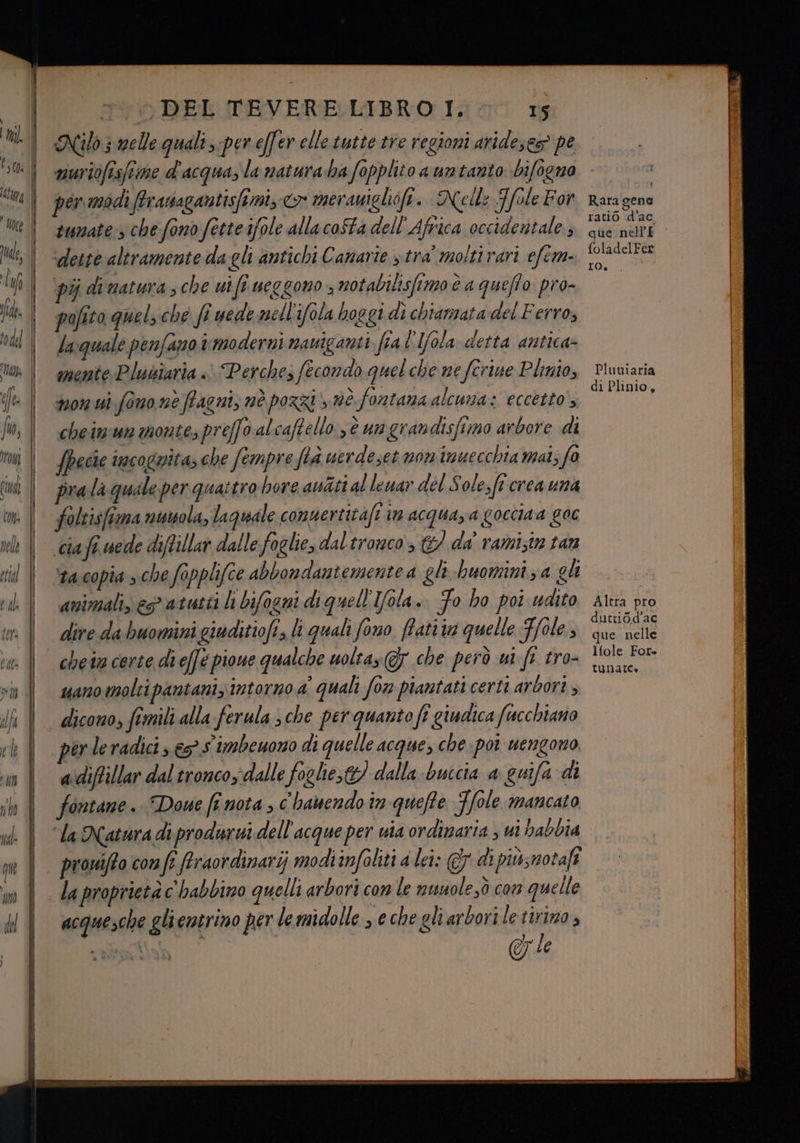 DEL TEVERE LIBRO I. 15
Nilo; nelle quali, per esser elle tutte tre regioni aride, et pe
nuriosissime d'acqua, la natura ha sopplito a un tanto bisogno
per modi strauagantissimi, et merauigliosi. Nelle Isole For
tunate, che sono sette isole alla costa dell'Africa occidentale,
dette altramente da gli antichi Canarie, tra' molti rari esem-
pij di natura, che ui si ueggono, notabilissimo è a questo pro-
posito quel, che si uede nell'isola hoggi di chiamata del Ferro,
la quale pensano i moderni nauiganti sia l'Isola detta antica-
mente Pluuiaria. Perche, secondo quel che ne scriue Plinio,
non ui sono nè stagni, nè pozzi, nè fontana alcuna: eccetto,
che in un monte, presso al castello, è un grandissimo arbore di
specie incognita, che sempre sta uerde, et non inuecchia mai, so
pra la quale per quattro hore auāti al leuar del Sole, si crea una
foltissima nuuola, laquale conuertitasi in acqua, a goccia a goc
cia si uede distillar dalle foglie, dal tronco, et da' rami, in tan
ta copia, che sopplisce abbondantemente a gli huomini, a gli
animali, et a tutti li bisogni di quell'Isola. Io ho poi udito
dire da huomini giuditiosi, li quali sono stati in quelle Isole,
che in certe di esse pioue qualche uolta, et che però ui si tro-
uano molti pantani, intorno a' quali son piantati certi arbori,
dicono, simili alla ferula, che per quanto si giudica succhiano
per le radici, et s'imbeuono di quelle acque, che poi uengono
a distillar dal tronco, dalle foglie, et dalla buccia a guisa di
fontane. Doue si nota, c'hauendo in queste Isole mancato
la Natura di produrui dell'acque per uia ordinaria, ui habbia
prouisto con sì straordinarij modi insoliti a lei: et di più, notasi
la proprietà c'habbino quelli arbori con le nuuole, ò con quelle
acque, che gli entrino per le midolle, e che gli arbori le tirino,
et le
Rara gene
ratiō d'ac
que nell'I
soladelFer
ro.
Pluuiaria
di Plinio,
Altra pro
duttiōd'ac
que nelle
Isole For-
tunate.